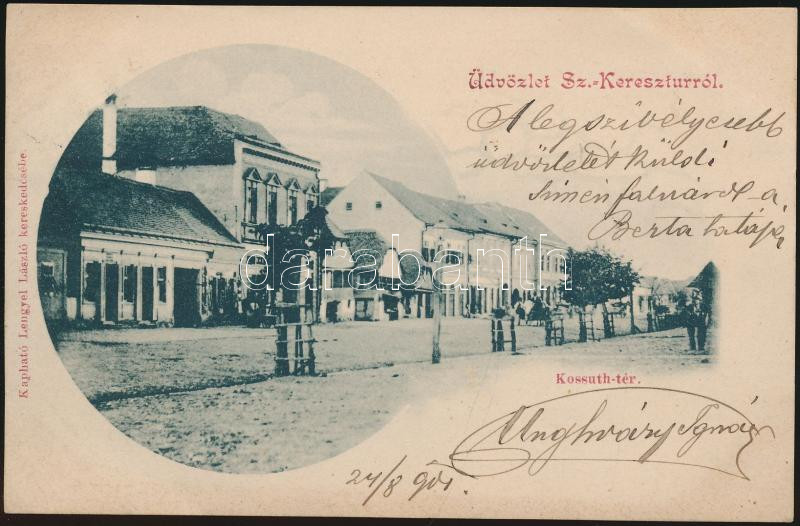 Üdvözlet Sz.-Kereszturról.
A legszivélyesebb
üdvözletét küldi
Simén falváról a
Berta tatája
darabanth
Kapható Lengyel László kereskedésébe.
Kossuth-tér.
Unghváry Ignác
24/8 901.